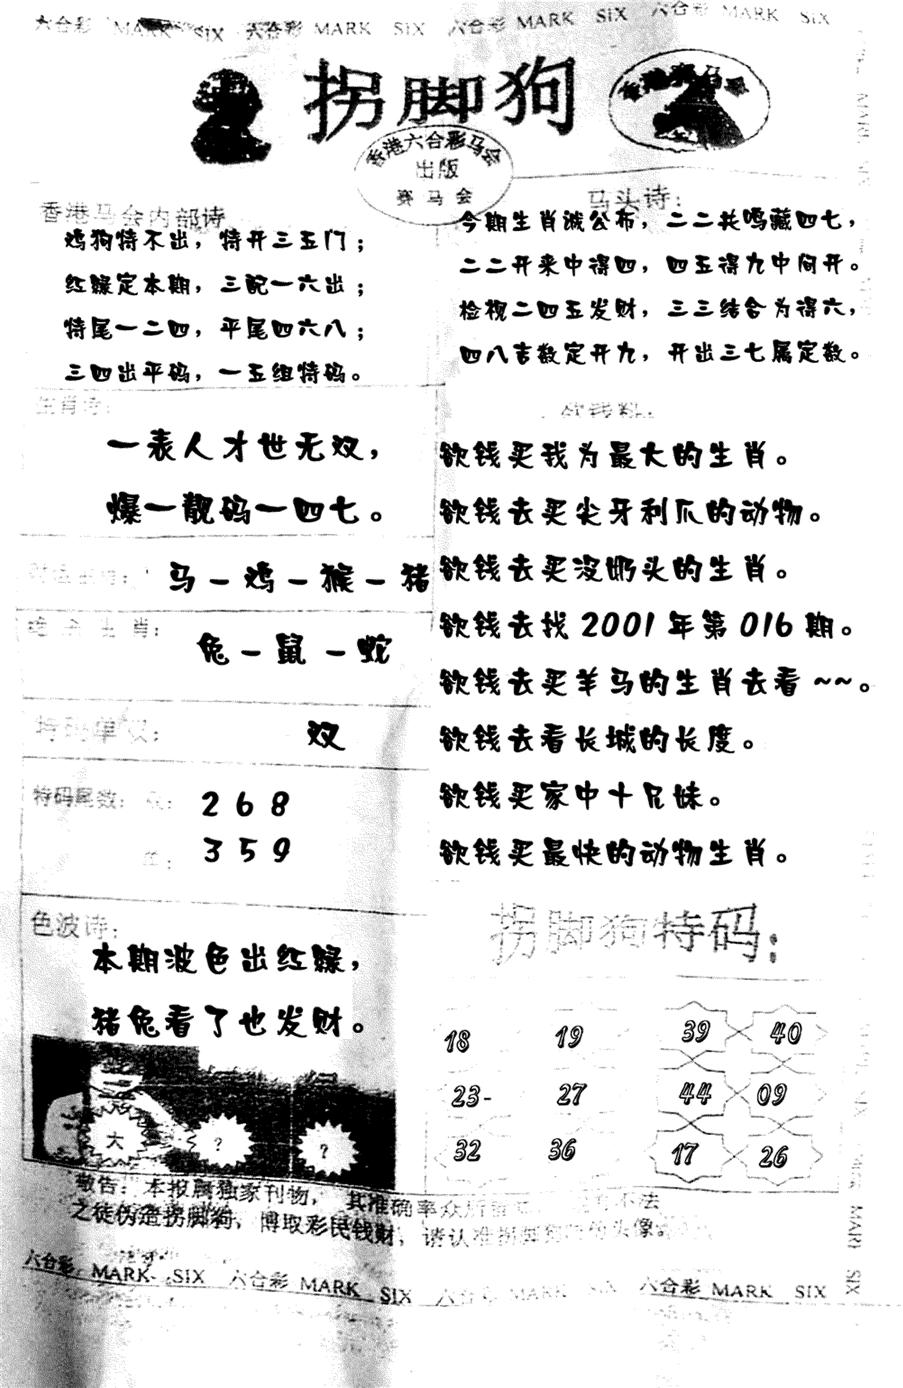 六合彩 MARK SIX 六合彩 MARK SIX 六合彩 MARK SIX 六合彩 MARK SIX
拐脚狗
香港赛马会
香港六合彩马会
出版
赛马会
香港马会内部诗
鸡狗特不出，特开三五门；
红绿定本期，三配一六出；
特尾一二四，平尾四六八；
三四出平码，一五组特码。
马头诗：
今期生肖诚公布，二二共鸣藏四七，
二二开来中得四，四五得九中间开。
检视二四五发财，三三结合为得六，
四八吉数定开九，开出三七属定数。
生肖诗：
一表人才世无双，
爆一靓码一四七。
马－鸡－猴－猪
绝杀生肖：
兔－鼠－蛇
特码单双：
双
特码尾数：双：
2 6 8
单：
3 5 9
色波诗：
本期波色出红绿，
猪兔看了也发财。
大
?
?
欲钱料：
欲钱买我为最大的生肖。
欲钱去买尖牙利爪的动物。
欲钱去买没奶头的生肖。
欲钱去找2001年第016期。
欲钱去买羊马的生肖去看~~。
欲钱去看长城的长度。
欲钱买家中十兄妹。
欲钱买最快的动物生肖。
拐脚狗特码：
18 19 39 40
23- 27 44 09
32 36 17 26
敬告：本报属独家刊物，其准确率众所 不法
之徒伪造拐脚狗，博取彩民钱财，请认准拐脚狗 头像。
六合彩 MARK SIX 六合彩 MARK SIX 六合彩 MARK SIX 六合彩 MARK SIX
MARK SIX